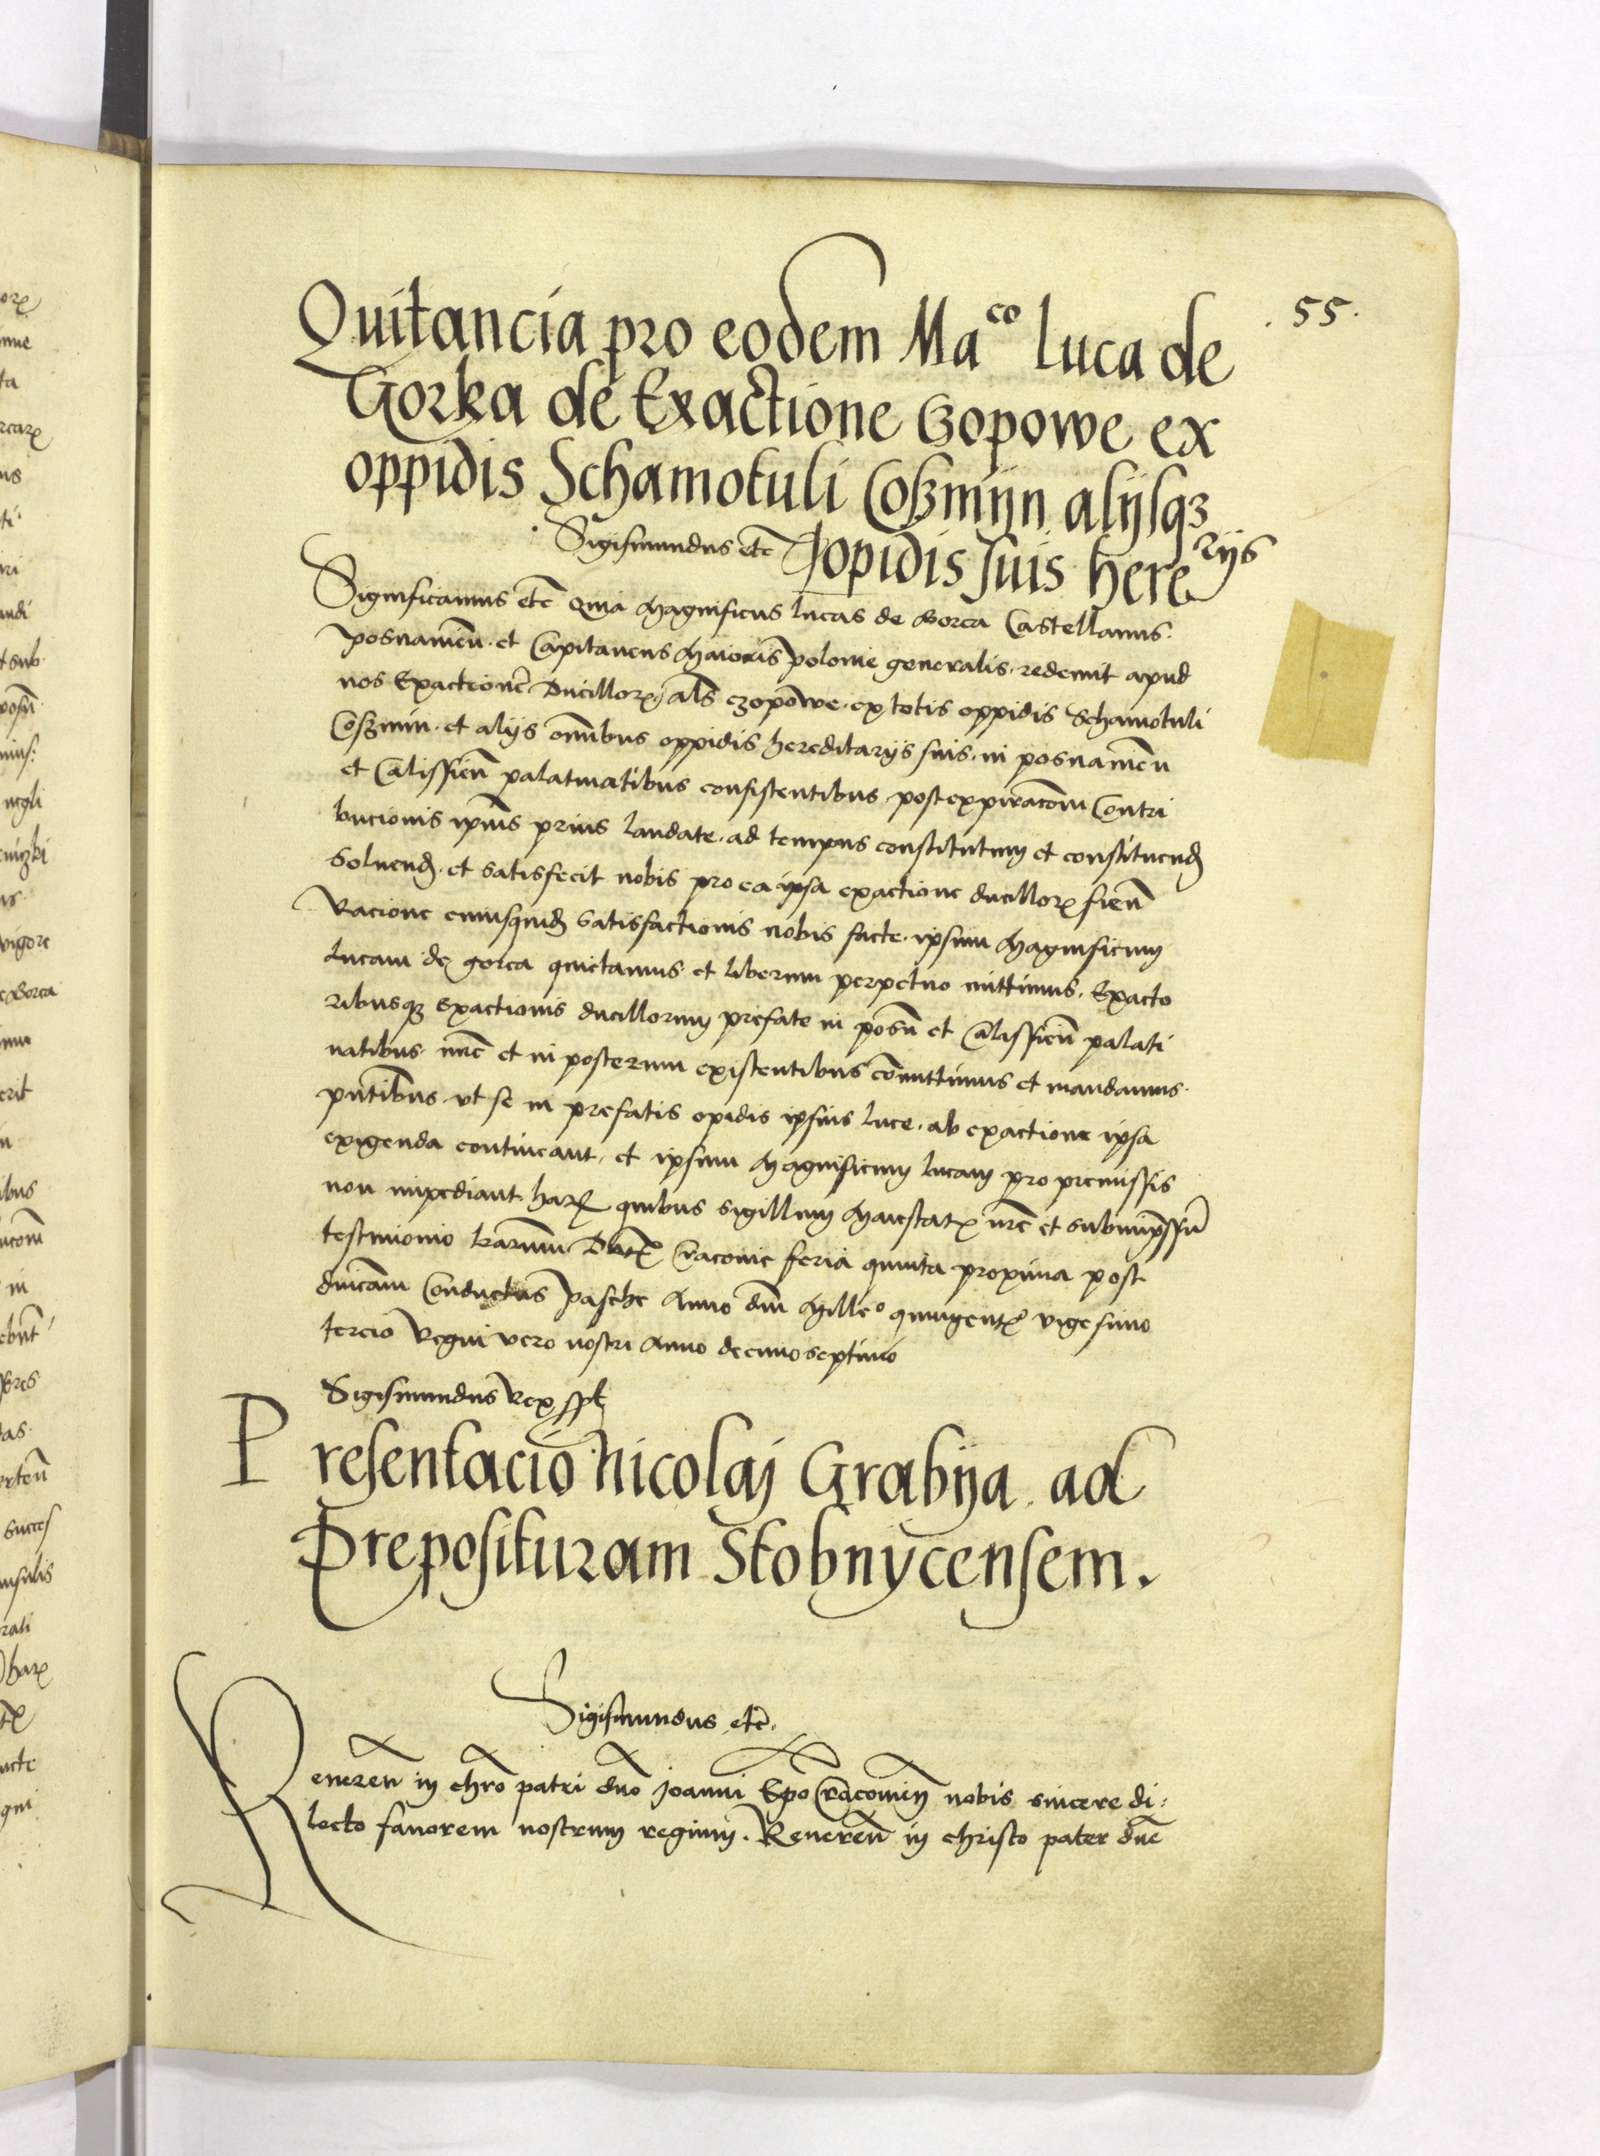 . 55 .
Quitancia pro eodem Ma^co luca de
Gorka de Exactione Czopowe ex
oppidis Schamotuli Coßmijn alijsqz
opidis suis here^rijs
Sigismundus etc
Significamus etc Quia Magnificus lucas de Gorca Castellanus
posnanien. et Capitaneus Maioris polonie generalis. redemit apud
nos Exactionē Ducillorꝝ als czopōwe. ex totis oppidis Schamotuli
Coßmin. et alijs omībus oppidis hereditarijs suis. in posnanien̄
et Calissien̄ palatinatibus consistentibus post expiracōm Contri
bucionis ipīus prius laudate. ad tempus constitutum et constituend
Soluend. et satisfecit nobis pro ea ipsa exactione ducillorꝝ
Racione cuiusquid satisfactionis nobis facte. ipsum Magnificum
Lucam de gorca quietamus et liberum perpetuo mittimus. Exacto
ribusqz exactionis ducillorum prefate in posn̄ et Calissien̄ palati
natibus nūc et in posterum existentibus cōmittimus et mandamus.
pn̄tibus vt se in prefatis opidis ipsius luce. ab exactione ipsa
exigenda contineant. et ipsum Magnificum lucam pro premissis
non impediant harꝝ quibus sigillum Maiestatꝭ nrē et
testimonio lrārum Datꝭ Cracouie feria quinta proxima post
dn̄icam Conductus pasche Anno dnī Mill^o quingentꝭ vigesimo
tercio Regni vero nostri Anno decimoseptimo
Sigismundus Rex sspt
Presentacio Nicolaj Grabÿa. ad
Preposituram Stobnÿcensem.
Sigismundus etc.
Reueren̄ in chrō patri dnō Joanni Epō Cracouien̄ nobis sincere di:
lecto fauorem nostrum regium. Reueren̄ in christo pater dnē